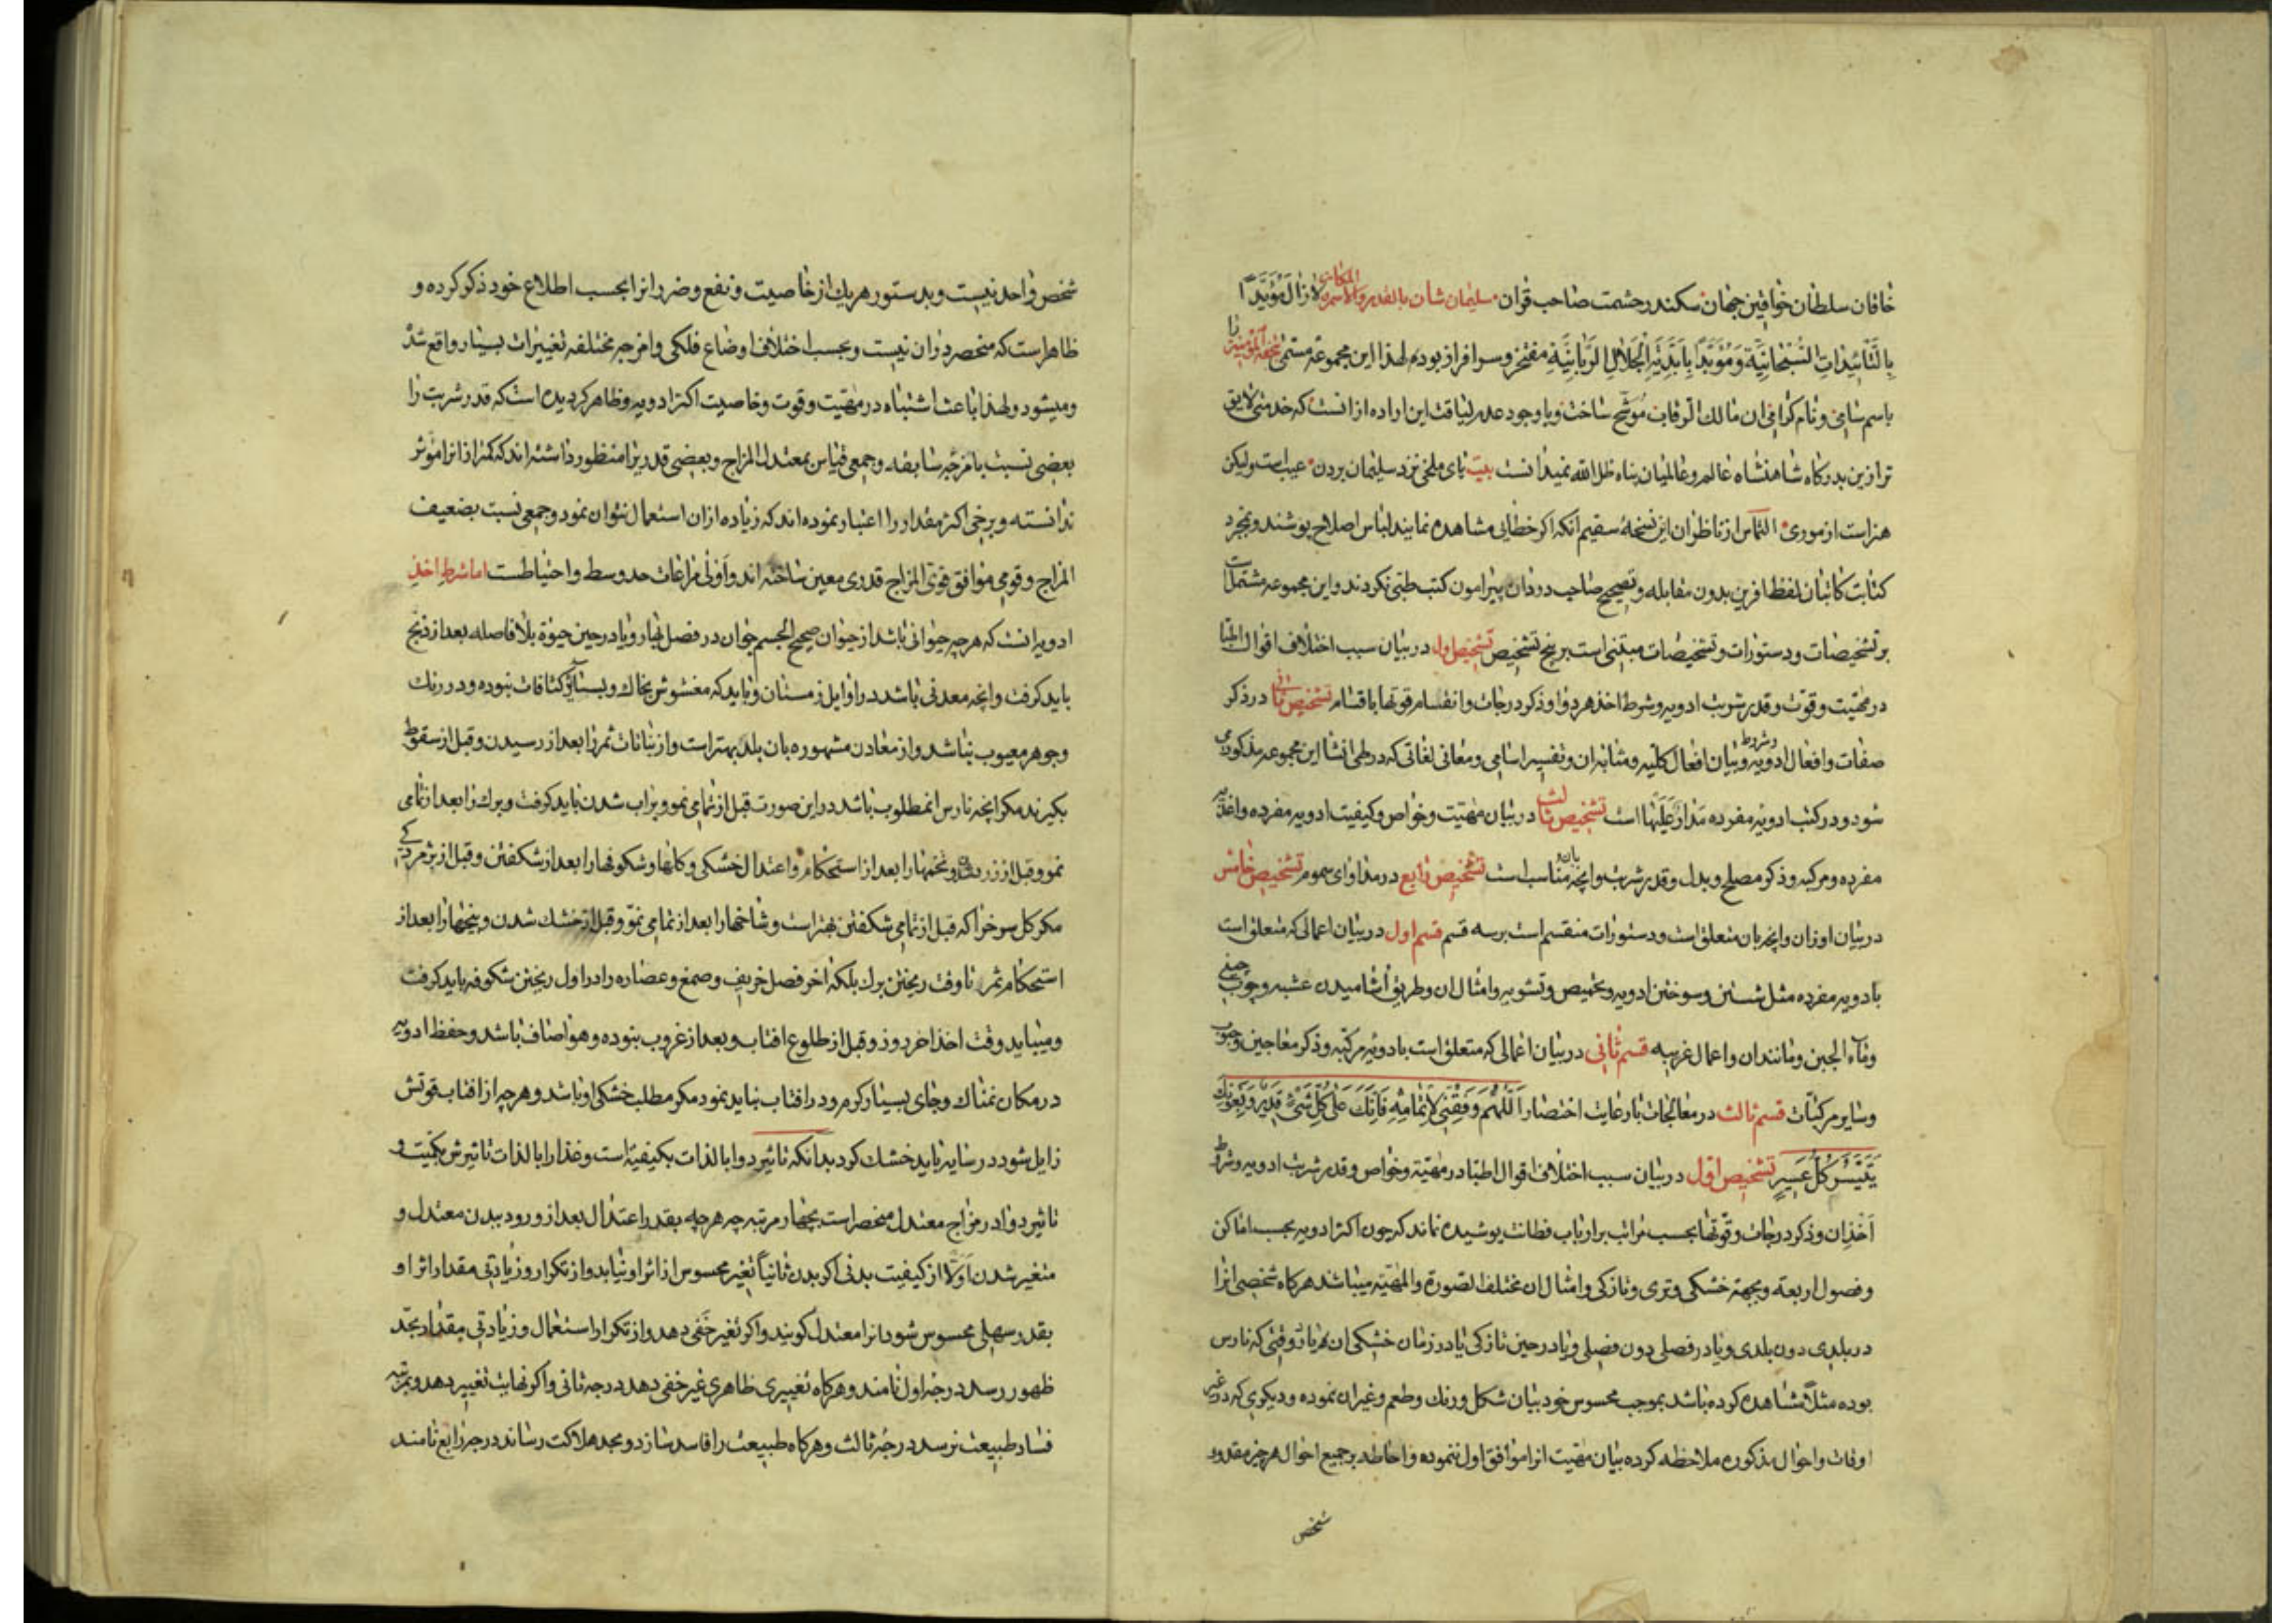 خاقان سلطان خواقین جهان سکندر حشمت صاحب قران سلیمان شان بالقدر والامر المکانی لازال مؤیدا
بالتائیدات السبحانیة و مؤبدا بابدیة الجلال الربانیة مفتخر و سرافراز بوده لهذا این مجموعه مسمی تحفة المؤمنین را
باسم سامی و نام گرامی ان مالک الرقاب موشح ساخت و با وجود عدم لیاقت این اراده از انست که خدمتی لایق
تر ازین بدرکاه شاهنشاه عالم و عالمیان پناه ظل الله نمیدانست بیت پای ملخی نزد سلیمان بردن عیب است ولیکن
هنر است از موری التماس از ناظران این نسخهٔ سقیم انکه اکر خطایی مشاهده نمایند لباس اصلاح پوشند و بمجرد
کتابت کاتبان لفظ افرین بدون مقابله و تصحیح صاحب دردان پیرامون کتب طبی نکردند و این مجموعه مشتملست
بر تشخیصات و دستورات و تشخیصات مبتنی است بر پنج تشخیص تشخیص اول در بیان سبب اختلاف اقوال اطبا
در مهیت و قوت و قدر شربت ادویه و شرط اخذ هر دوا و ذکر درجات و انقسام قوتها باقسام تشخیص ثانی در ذکر
صفات و افعال ادویه و شروط و بیان افعال کلیه و مشابه ان و تفسیر اسامی و معانی لغاتی که در طی انشا این مجموعه مذکور می
شود و در کتب ادویه مفرده مدار علیها است تشخیص ثالث در بیان مهیت و خواص و کیفیت ادویه مفرده و اغذیه
مفرده و مرکبه و ذکر مصلح و بدل و قدر شربت و انچه بان و مناسب است تشخیص رابع در مداوای سموم تشخیص خامس
در بیان اوزان و انچه بان متعلق است و دستورات منقسم است بر سه قسم قسم اول در بیان اعمالی که متعلق است
بادویه مفرده مثل شستن و سوختن ادویه و تحمیص و تشویه و امثال ان و طریق اشامیدن عشبه و چوب چینی
و ماء الجبن و مانند ان و اعمال غریبه قسم ثانی در بیان اعمالی که متعلق است بادویه مرکبه و ذکر معاجین و حبوب
و سایر مرکبات قسم ثالث در معالجات بارعایت اختصار اللهم وفقنی لاتمامه فانک علی کل شیء قدیر و بعونک
یتیسر کل عسیر تشخیص اول در بیان سبب اختلاف اقوال اطبا در مهیة و خواص و قدر شربت ادویه و شرط
اخذ ان و ذکر درجات و قوتها بحسب مراتب بر ارباب فطانت پوشیده نماند که چون اکثر ادویه بحسب اماکن
و فصول اربعه و بجهة خشکی و تری و تازکی و امثال ان مختلف الصورة والمهیة میباشد هرکاه شخصی انرا
در بلدی دون بلدی و یا در فصلی دون فصلی و یا در حین تازکی یا در زمان خشکی ان و یا وقتی که نارس
بوده مثلا مشاهده کرده باشد بموجب محسوس خود بیان شکل و رنک و طعم و غیر ان نموده و دیکری که در غیر
اوقات و احوال مذکوره ملاحظه کرده بیان مهیت انرا موافق اول ننموده و احاطه بر جمیع احوال هر چیز مقدور
شخص
شخص واحد نیست و بدستور هریک از خاصیت و نفع و ضرر انرا بحسب اطلاع خود ذکر کرده و
ظاهر است که منحصر در ان نیست و بحسب اختلاف اوضاع فلکی و امزجه مختلفه تغییرات بسیار واقع شد
و میشود ولهذا باعث اشتباه در مهیت و قوت و خاصیت اکثر ادویه و ظاهر کردیده است که قدر شربت را
بعضی نسبت بامزجه سابقه و جمعی قیاس بمعتدل المزاج و بعضی قدریرا منظور داشته اند که کمتر از انرا مؤثر
ندانسته و برخی اکثر مقدار را اعتبار نموده اند که زیاده از ان استعمال نتوان نمود و جمعی نسبت بضعیف
المزاج و قومی موافق قوی المزاج قدری معین ساخته اند و اولی مراعات حد وسط و احتیاطست اما شرط اخذ
ادویه انست که هرچه حیوانی باشد از حیوان صحیح الجسم جوان در فصل بهار و یا در حین حیوة بلافاصله بعد از ذبح
باید کرفت و انچه معدنی باشد در اوایل زمستان و باید که مغشوش بخاک و بسایر کثافات نبوده و در رنک
و جوهر معیوب نباشد و از معادن مشهوره بان بلد بهتر است و از نباتات ثمر را بعد از رسیدن و قبل از سقوط
بکیرند مکر انچه نارس ان مطلوب باشد در این صورت قبل از تمامی نمو و پراب شدن باید کرفت و برک را بعد از تمامی
نمو و قبل از زرد شدن و تخمها را بعد از استحکام و اعتدال خشکی و کلها و شکوفها را بعد از شکفتن و قبل از پژمردکی
مکر کل سرخ را که قبل از تمامی شکفتن بهتر است و شاخها را بعد از تمامی نمو و قبل از خشک شدن و بیخها را بعد از
استحکام ثمر تا وقت ریختن برک بلکه اخر فصل خریف و صمغ و عصاره را در اول ریختن شکوفه باید کرفت
و میباید وقت اخذ اخر روز و قبل از طلوع افتاب و بعد از غروب نبوده و هوا صاف باشد و حفظ ادویه
در مکان نمناک و جای بسیار کرم و در افتاب نباید نمود مکر مطلب خشکی او باشد و هرچه از افتاب قوتش
زایل شود در سایه باید خشک کرد بدانکه تاثیر دوا بالذات بکیفیت است و غذا را بالذات تاثیرش بکمیت و
تاثیر دوا در مزاج معتدل منحصر است بچهار مرتبه چه هرچه بقدر اعتدال بعد از ورود بدن معتدل و
متغیر شدن اولا از کیفیت بدنی اکر بدن ثانیا تغیر محسوس از اثر او نیابد و از تکرار و زیادتی مقدار اثر او
بقدر سهلی محسوس شود انرا معتدل کویند و اکر تغیر خفی دهد و از تکرار استعمال و زیادتی مقدار بحد
ظهور رسد درجه اول نامند و هرکاه تغییری ظاهری غیر خفی دهد درجه ثانی و اکر نهایت تغییر دهد و بمرتبه
فساد طبیعت نرسد درجه ثالث و هرکاه طبیعت را فاسد سازد و بحد هلاکت رساند درجه رابع نامند